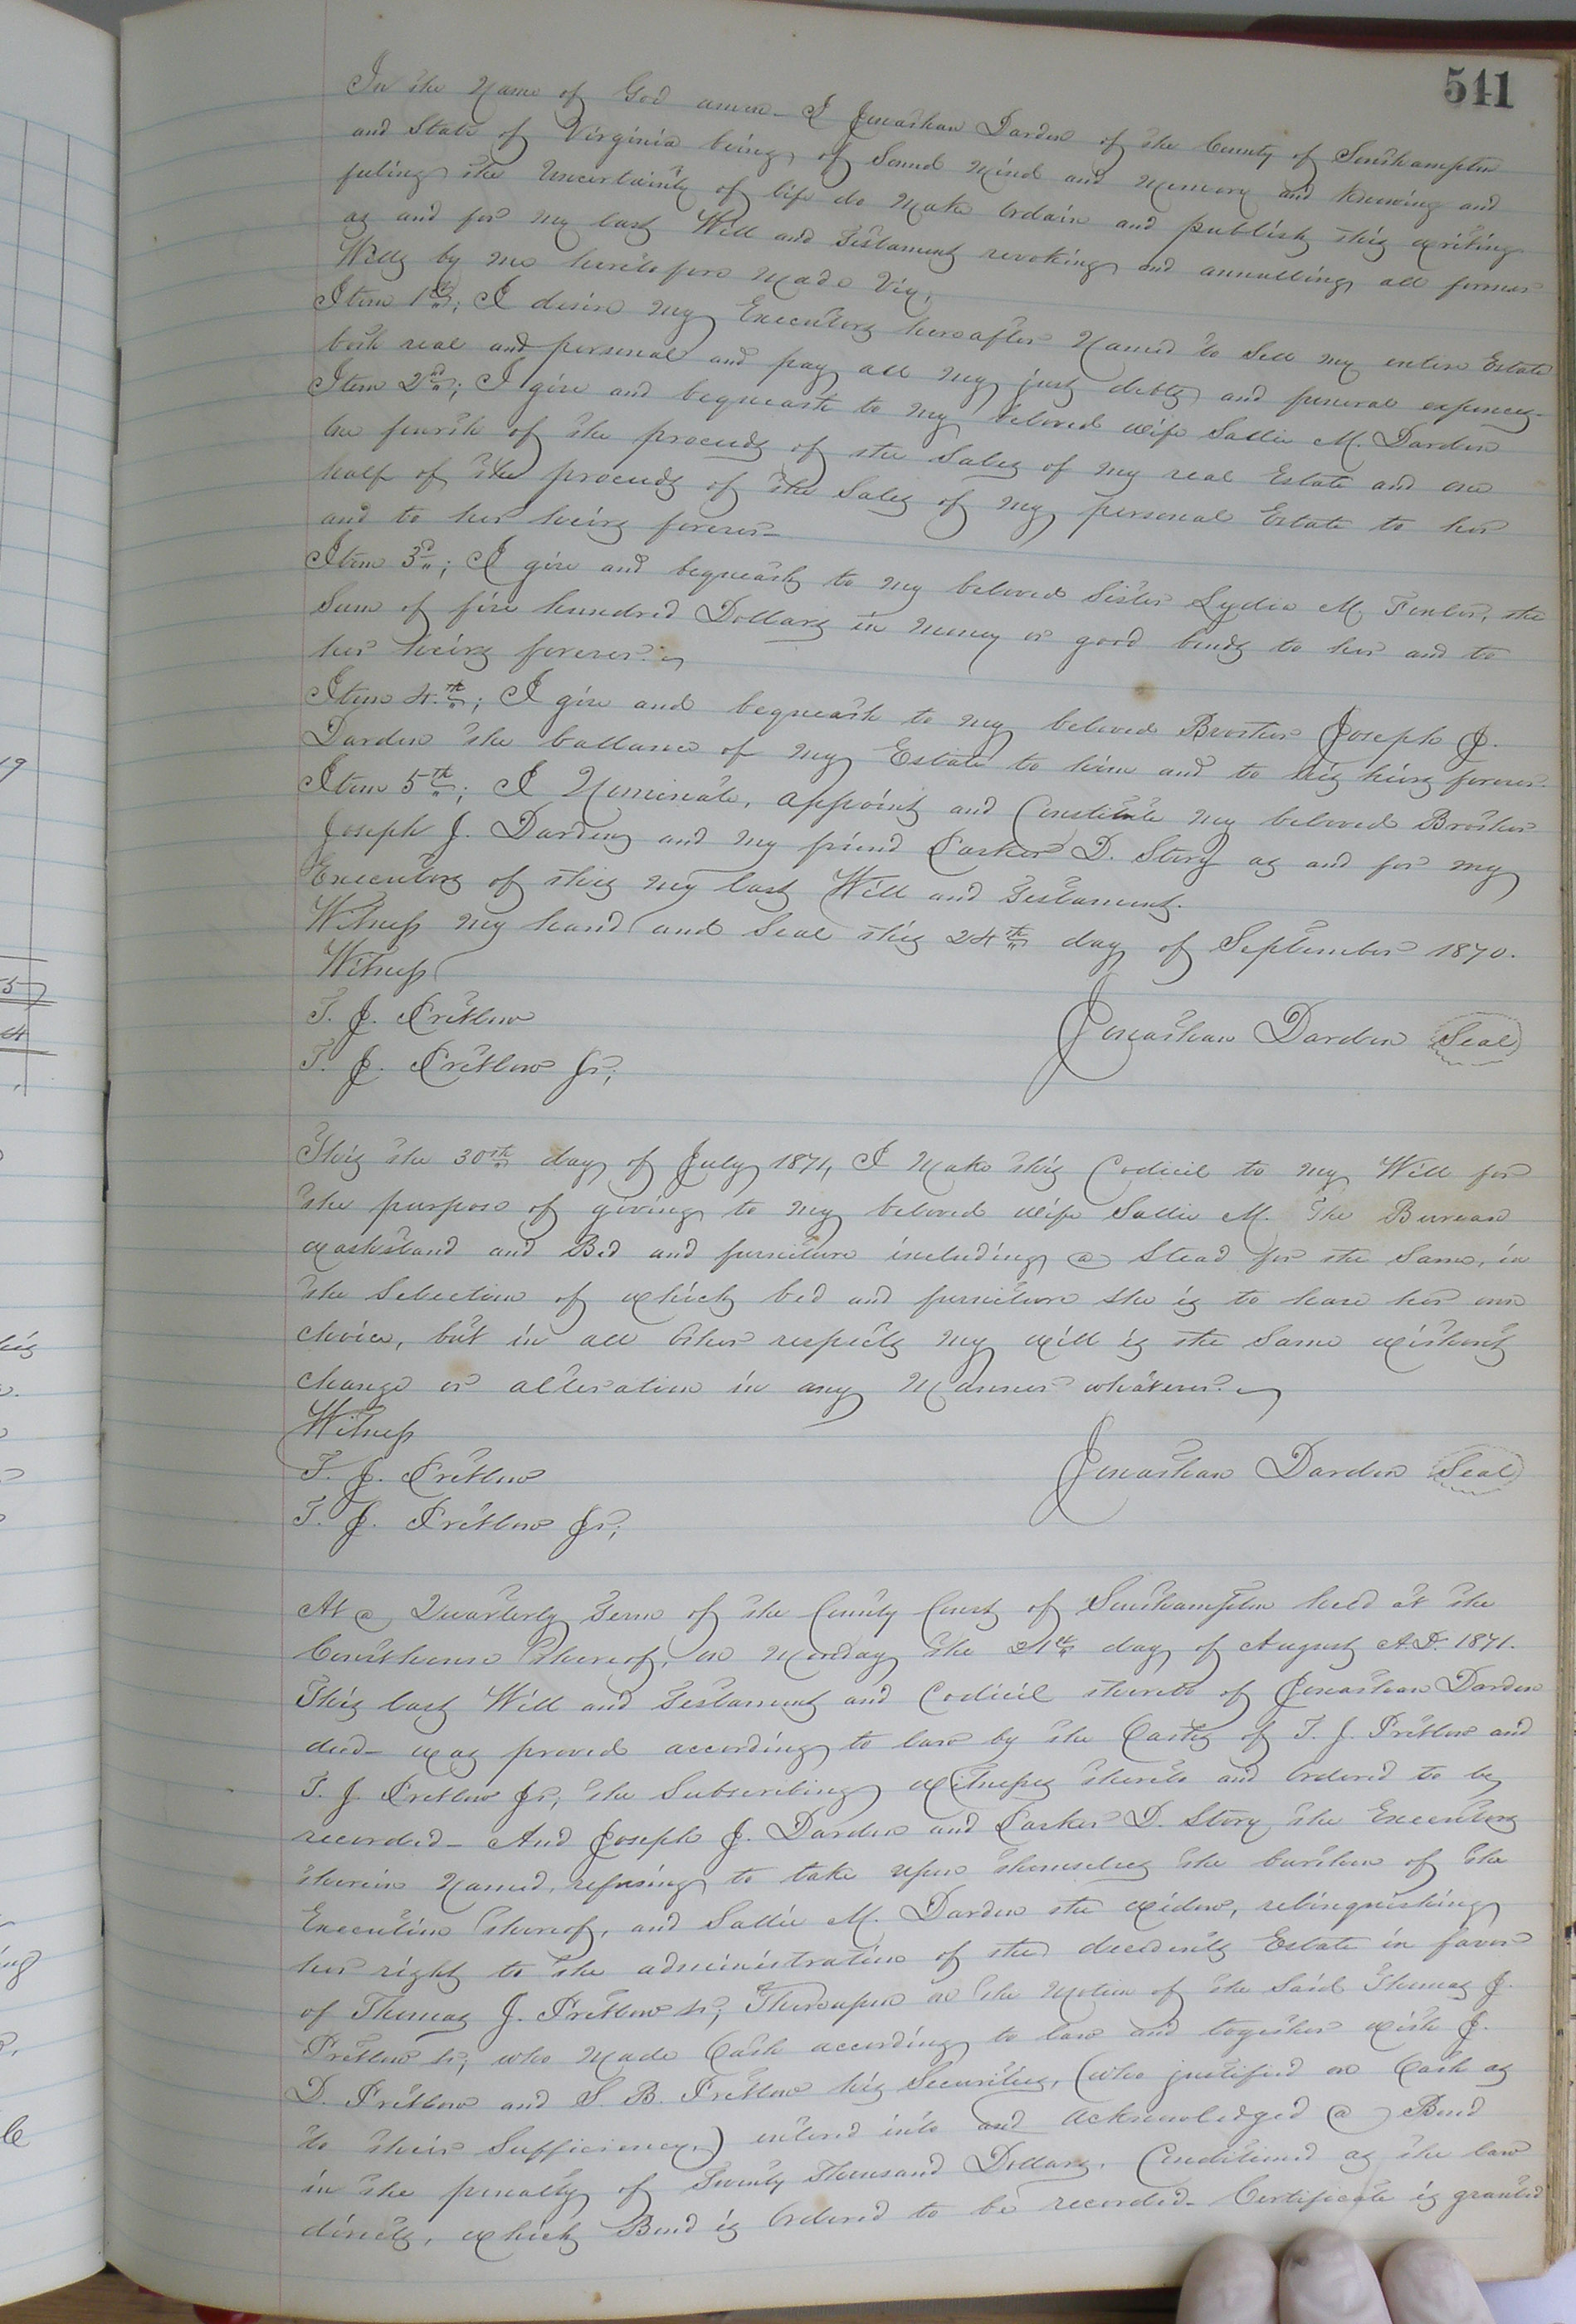 541
In the Name of God amen— I Jonathan Darden of the County of Southampton
and State of Virginia being of Sound Mind and Memory and Knowing and
feeling the Uncertainty of life do Make Ordain and publish this writing
as and for my last Will and Testament revoking and annulling all former
Wills by me heretofore Made Viz;
Item 1st; I desire my Executors hereafter Named to Sell my entire Estate
both real and personal and pay all my just debts and funeral expences—
Item 2d; I give and bequeath to my beloved wife Sallie M. Darden
One fourth of the proceeds of the Sales of my real Estate and one
half of the proceeds of the Sales of my personal Estate to her
and to her heirs forever—
Item 3d; I give and bequeath to my beloved Sister Lydia M. the
Sum of five hundred Dollars in money or good bonds to her and to
her heirs forever.
Item 4.th; I give and bequeath to my beloved Brother Joseph J.
Darden the ballance of my Estate to him and to his heirs forever.
Item 5th; I Nominate, appoint and Constitute my beloved Brother
Joseph J. Darden and my friend Parker D. Story as and for my
Executors of this my last Will and Testament.
Witness my hand and Seal this 24th day of September 1870.
Witness
T. J. Pretlow
Jonathan Darden Seal
T. J. Pretlow Jr;
This the 30th day of July 1871, I Make this Codicil to my Will for
the purpose of giving to my beloved wife Sallie M. The Bureau
washstand and Bed and furniture including a Stead for the Same, in
the Selection of which bed and furniture She is to have her own
choice, but in all Other respects my will is the Same without
change or alteration in any Manner whatever.
Witness
T. J. Pretlow
Jonathan Darden Seal
T. J. Pretlow Jr;
At a Quarterly Term of the County Court of Southampton held at the
Courthouse thereof, on Monday the 21st day of August A.D. 1871.
This last Will and Testament and Codicil thereto of Jonathan Darden
decd— was proved according to law by the Oaths of T. J. Pretlow and
T. J. Pretlow Jr; the Subscribing Witnesses thereto and Ordered to be
recorded— And Joseph J. Darden and Parker D. Story the Executors
therein Named, refusing to take upon themselves the burthen of the
Execution thereof, and Sallie M. Darden the widow, relinquishing
her right to the administration of the decedents Estate in favor
of Thomas J. Pretlow Sr; Thereupon on the Motion of the Said Thomas J.
Pretlow Sr; who Made Oath according to law and together with J.
D. Pretlow and S. B. Pretlow his Securities, (who justified on Oath as
to their Sufficiency,) entered into and acknowledged a Bond
in the penalty of Twenty Thousand Dollars. Conditioned as the law
directs, which Bond is Ordered to be recorded— Certificate is granted